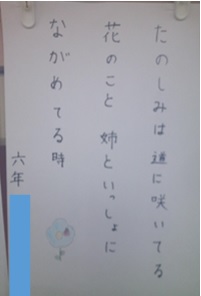 たのしみは道に咲いてる
花のこと 姉といっしょに
ながめてる時
六年